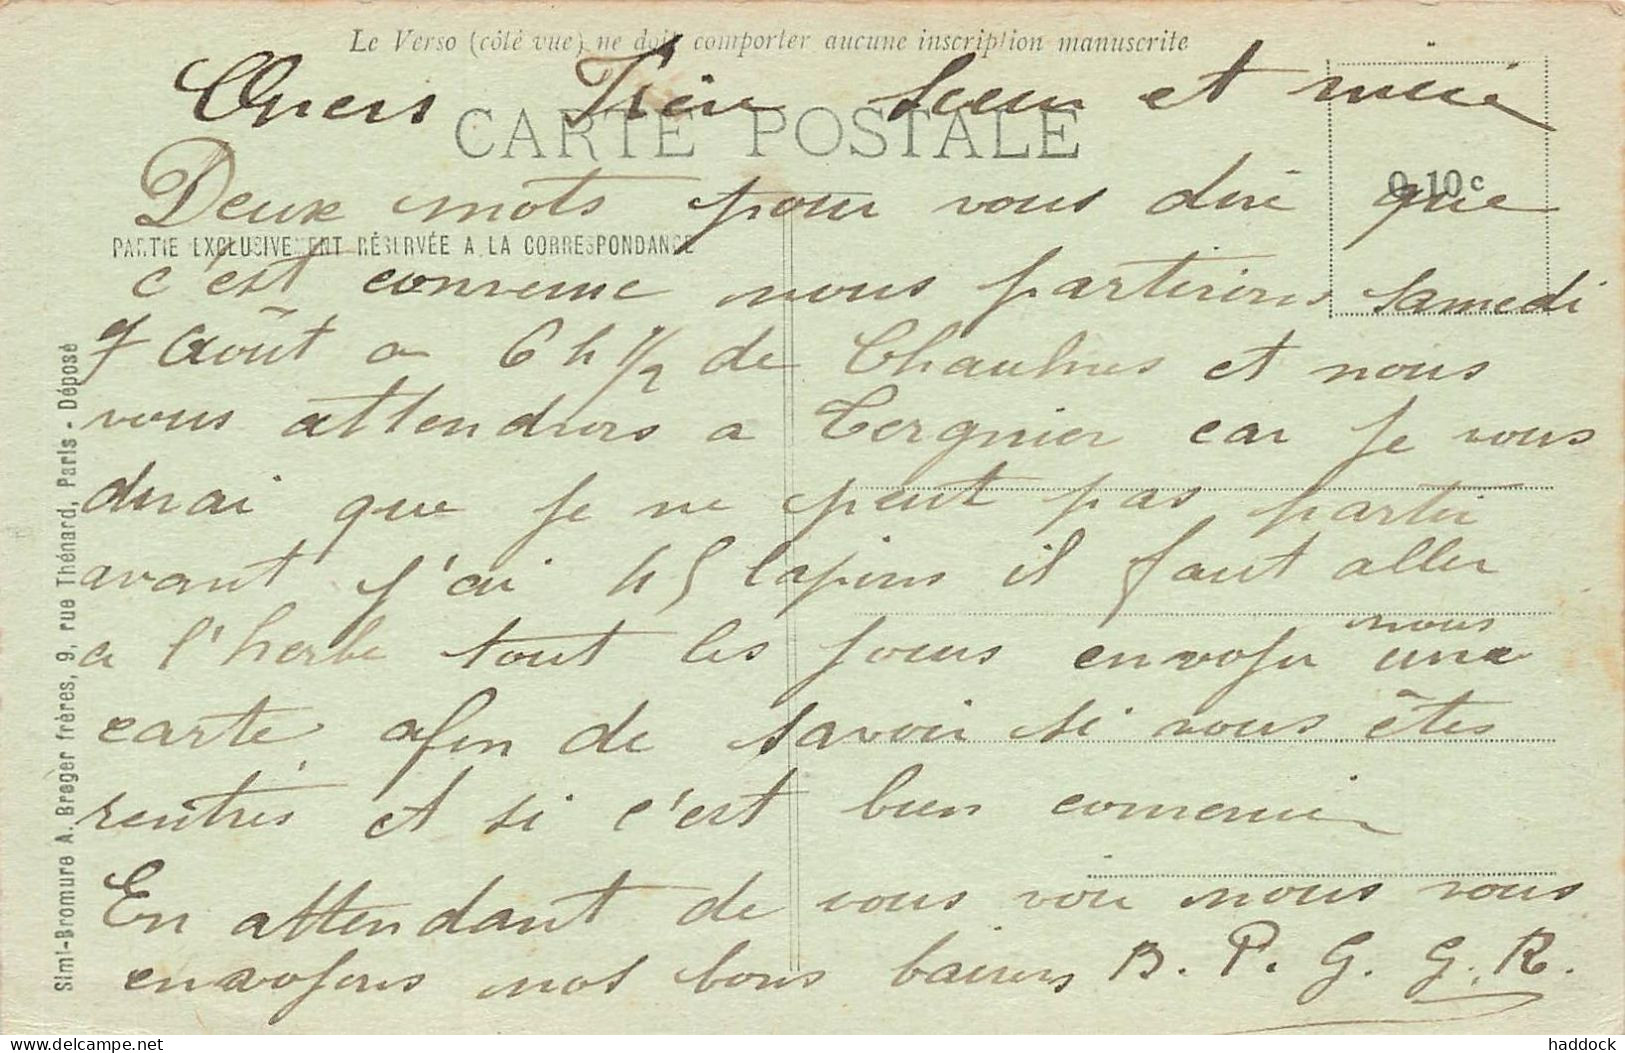 Le Verso (côté vue) ne doit comporter aucune inscription manuscrite
Chers Frère Soeur et mere
CARTE POSTALE
0.10c
Deux mots pour vous dire que
PARTIE EXCLUSIVEMENT RÉSERVÉE A LA CORRESPONDANCE
c'est convenue nous partirons samedi
7 Août a 6 h 1/2 de Chaulnes et nous
vous attendrons a Tergnier car je vous
dirai que je ne peut pas partir
avant j'ai 45 lapins il faut aller
a l'herbe tout les jours envoyer nous une
carte afin de savoir si vous êtes
rentrés et si c'est bien convenue
En attendant de vous voir nous vous
envoyons nos bons baisers B. P. G. G. R.
Simi-Bromure A. Breger frères, 9, rue Thénard, Paris - Déposé
haddock